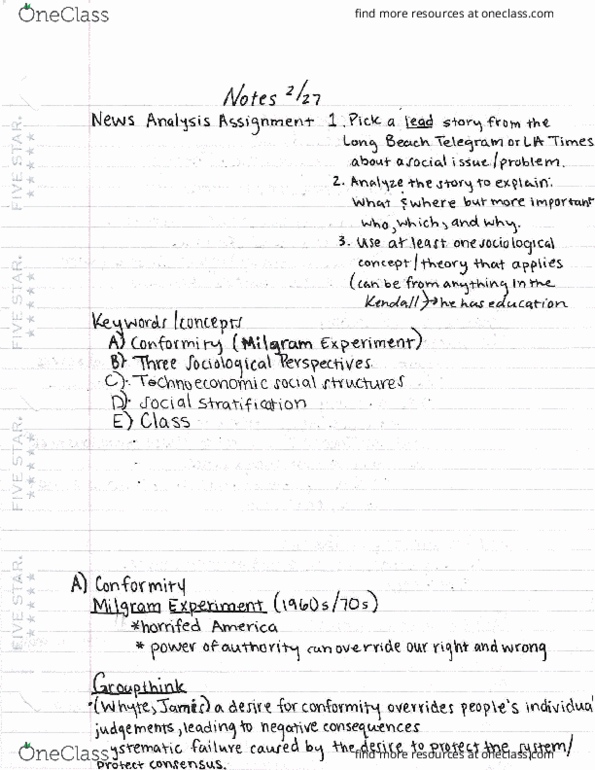 OneClass
find more resources at oneclass.com
Notes 2/27
News Analysis Assignment 1. Pick a lead story from the
Long Beach Telegram or LA Times
about a social issue/problem.
2. Analyze the story to explain:
What & where but more important
who, which, and why.
3. Use at least one sociological
concept/theory that applies
(can be from anything in the
Kendall)→he has education
Keywords/concepts
A) Conformity (Milgram Experiment)
B) Three Sociological Perspectives
C) Technoeconomic social structures
D) Social Stratification
E) Class
A) Conformity
Milgram Experiment (1960s/70s)
*horrifed America
* power of authority can override our right and wrong
Groupthink
(Whyte, James) a desire for conformity overrides people's individual
judgements, leading to negative consequences
systematic failure caused by the desire to protect the system/
protect consensus.
OneClass
find more resources at oneclass.com
FIVE STAR.
FIVE STAR.
FIVE STAR.
FIVE STAR.